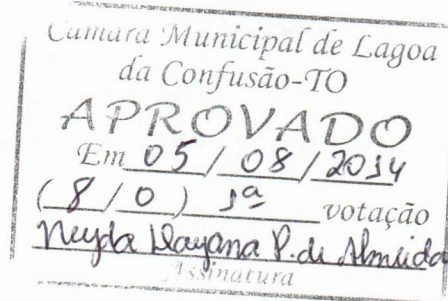 Câmara Municipal de Lagoa
da Confusão-TO
APROVADO
Em 05 / 08 / 2014
( 8 / 0 ) 1ª votação
Neyda Dayana P. de Almeida
Assinatura